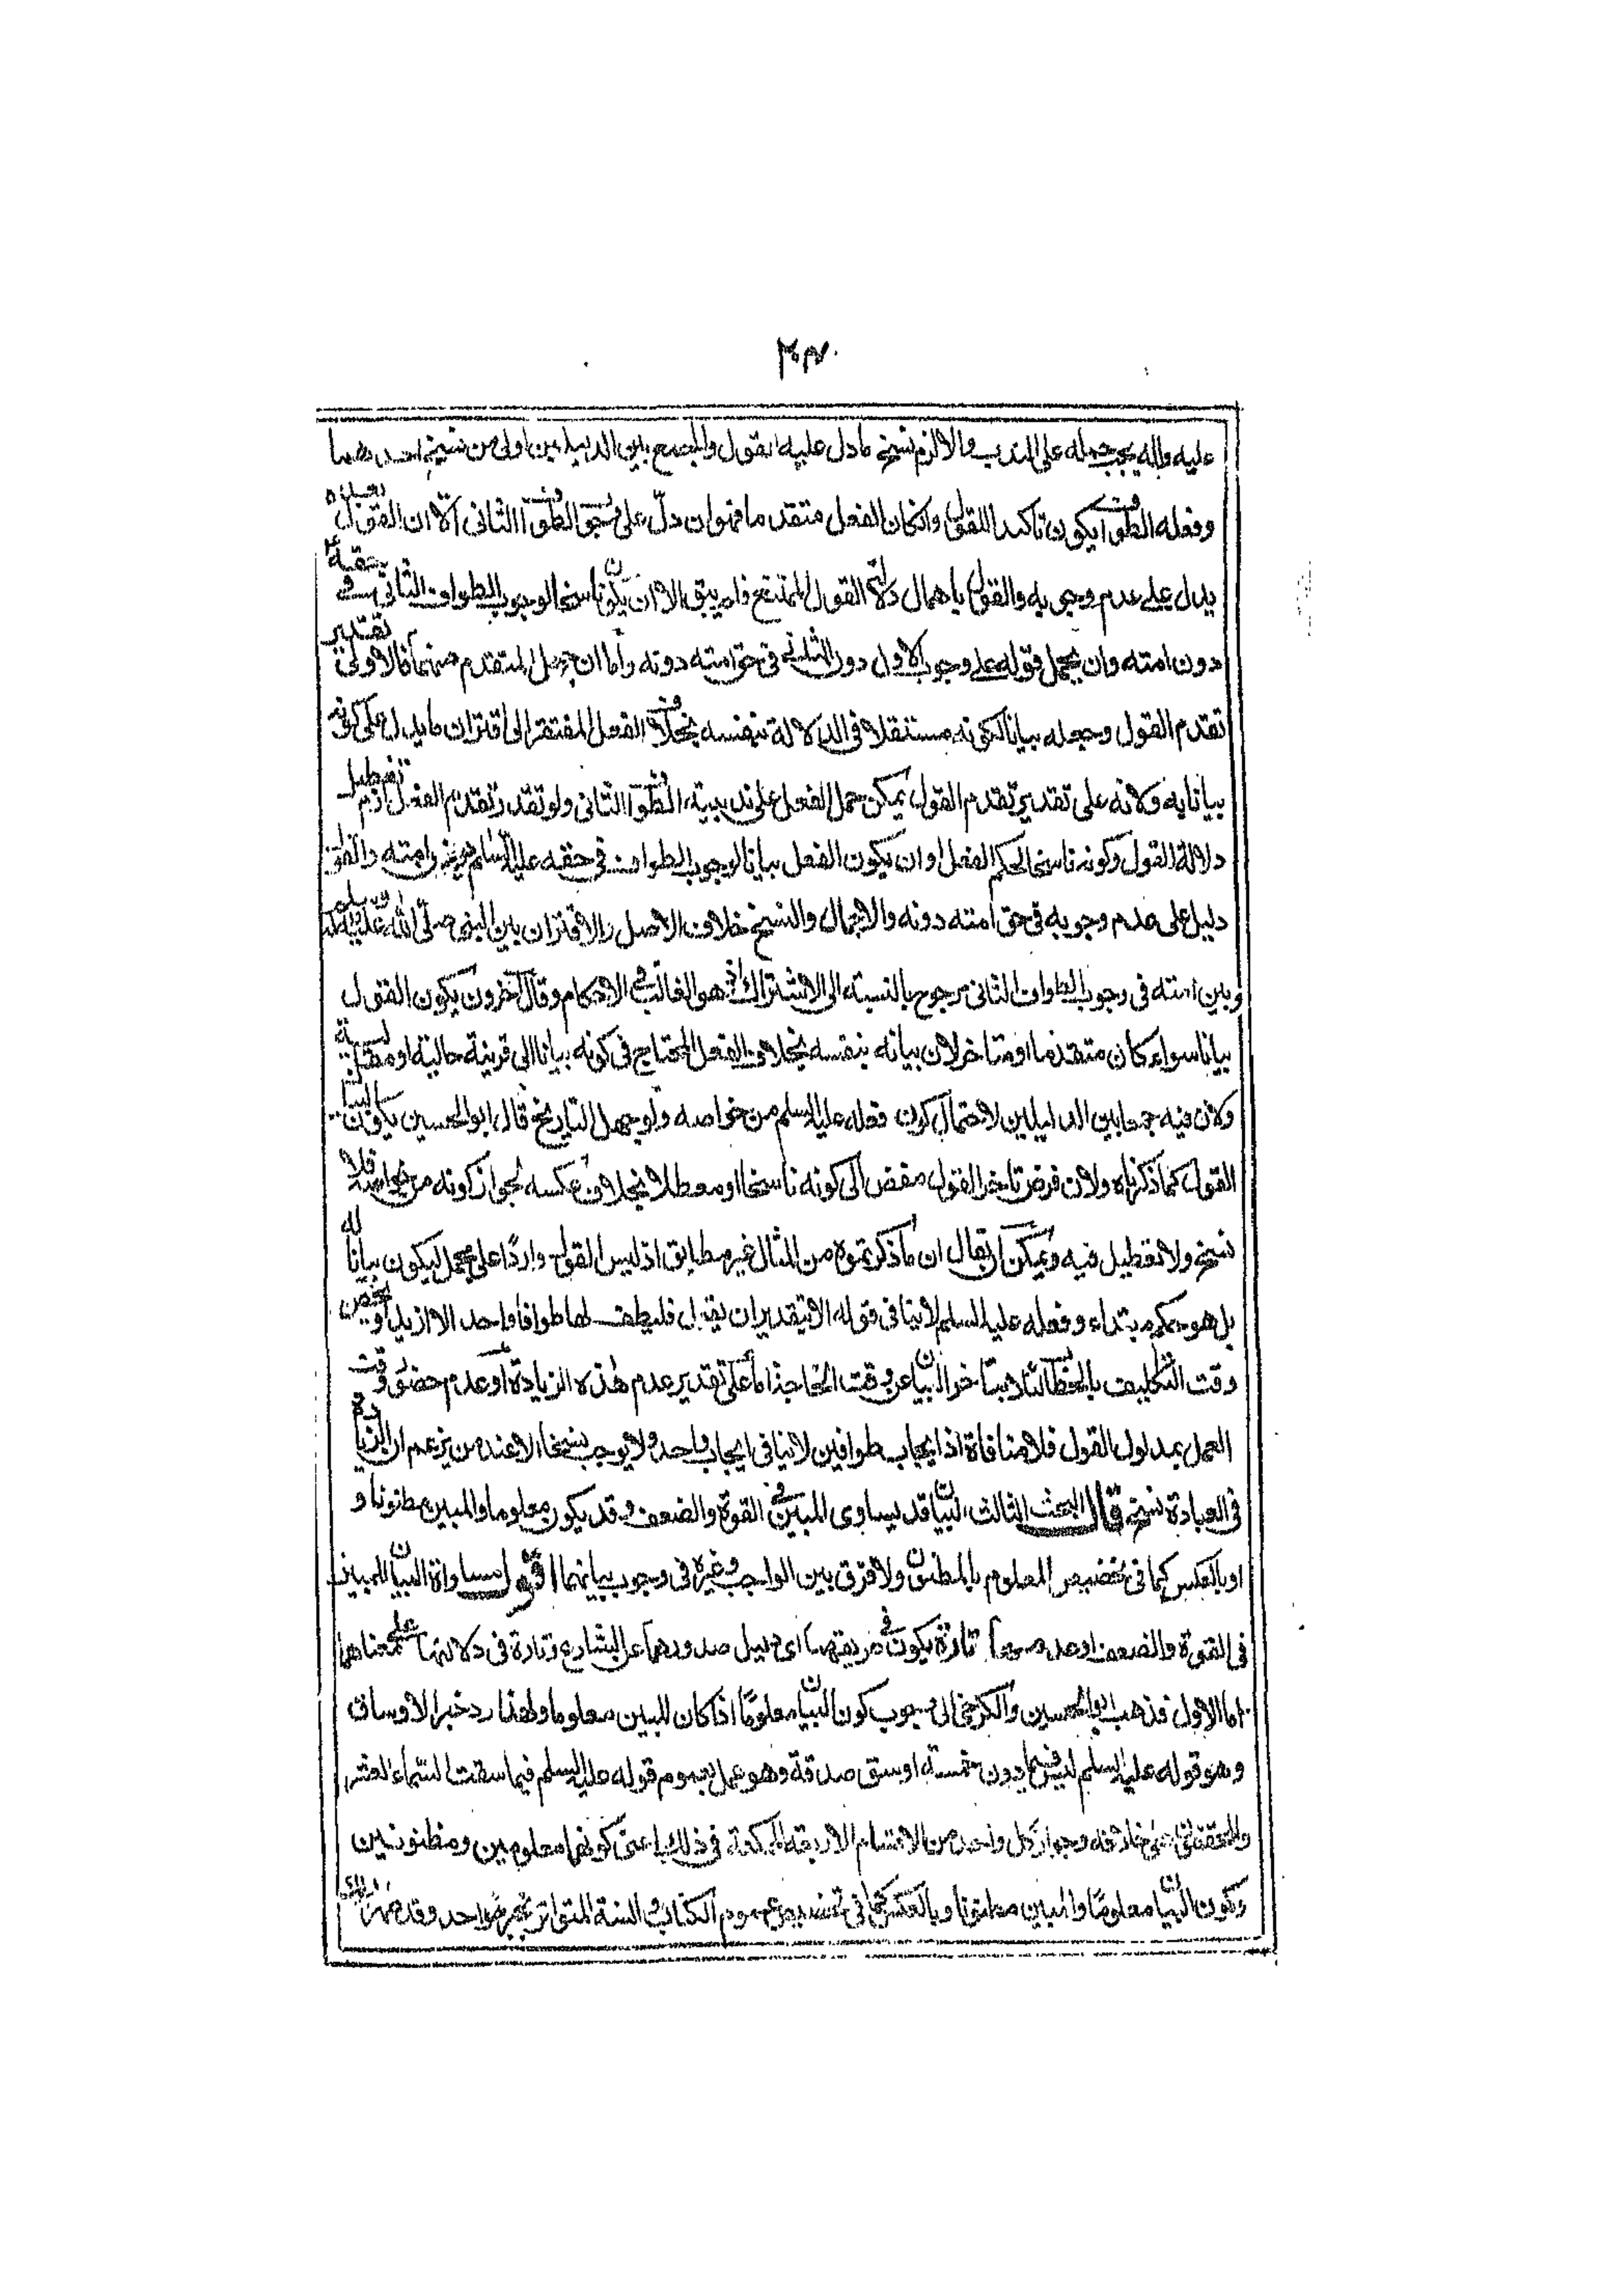 عليه واله يجب حمله على الندب والالزم نسخ ما دل عليه القول والجمع بين الدليلين اولى من نسخ احدهما
وفعله الطواف يكون تاكيدا للقول وان كان الفعل متقدما فهو ان دلّ على وجوب الطواف الثانى الّا ان القول بعده
يدل على عدم وجوبه والقول باهمال دلالة القول الممتنع فلم يبق الا ان يكون ناسخا لوجوب الطواف الثانى فى حقه
دون امته وان يحمل قوله على وجوب الاول دون الثانى فى حق امته دونه وأما ان جهل المتقدم منهما فالاولى تقدير
تقدم القول وجعله بيانا لكونه مستقلا فى الدلالة بنفسه بخلاف الفعل المفتقر الى اقتران ما يدل على كونه
بيانا به ولانه على تقدير تقدم القول يمكن حمل الفعل على ندبية الطواف الثانى ولو تقدر تقدم الفعل لزم تعطيل
دلالة القول وكونه ناسخا لحكم الفعل او ان يكون الفعل بيانا لوجوب الطواف فى حقه عليه السلم دون امته والقول
دليل على عدم وجوبه فى حق امته دونه والاجمال والنسخ خلاف الاصل والاقتران بين النبى صلّى الله عليه وسلم
وبين امته فى وجوب الطواف الثانى مرجوح بالنسبة الى الاشتراك اذ هو الغالب فى الاحكام وقال آخرون يكون القول
بيانا سواء كان متقدما او متاخر لان بيانه بنفسه بخلاف الفعل المحتاج فى كونه بيانا الى قرينة حالية او مقالية
ولان فيه جمعا بين الدليلين لاحتمال كون فعله عليه السلم من خواصه ولو جهل التاريخ قال ابو الحسين يكون البيان
القول كما ذكرناه ولان فرض تاخر القول مفض الى كونه ناسخا او معطلا بخلاف عكسه لجواز كونه من خواصه فلا
نسخ ولا تعطيل فيه ويمكن ان يقال ان ما ذكرتموه من المثال غير مطابق اذ ليس القول واردًا على مجمل ليكون بيانًا له
بل هو حكم مبتداء وفعله عليه السلم لا ينافى قوله الا بتقدير ان يقول فليطف لها طوافا واحد الا ازيد او يحضر
وقت التكليف بالخطاب لئلا يتاخر البيان عن وقت الحاجة اما على تقدير عدم هذه الزيادة أو عدم حضور وقت
العمل بمدلول القول فلا منافاة اذ ايجاب طوافين لا ينافى ايجاب واحد ولا يوجب نسخا الا عند من يزعم ان الزيادة
فى العبادة نسخ قال البحث الثالث البيان قد يساوى المبين فى القوة والضعف وقد يكون معلوما والمبين مظنونا و
او بالعكس كما فى تخصيص المعلوم بالمظنون ولا فرق بين الواجب وغيره فى وجوب بيانهما اقول مساواة البيان للمبين
فى القوة والضعف او عدمها تارة يكون فى طريقهما اى سبيل صدورهما عن الشارع وتارة فى دلالتهما على معناهما
اما الاول فذهب ابو الحسين والكرخى الى وجوب كون البيان معلومًا اذا كان المبين معلوما ولهذا رد خبر الاوساق
وهو قوله عليه السلم ليس فيما دون خمسة اوسق صدقة وهو عمل بعموم قوله عليه السلم فيما سقت السماء العشر
والمحققون على خلافه وجواز كل واحد من الاقسام الاربعة الممكنة فى ذلك اعنى كونهما معلومين ومظنونين
وكون البيان معلومًا والمبين مظنونا وبالعكس كما فى تخصيص عموم الكتاب والسنة المتواتر بخبر واحد وقد